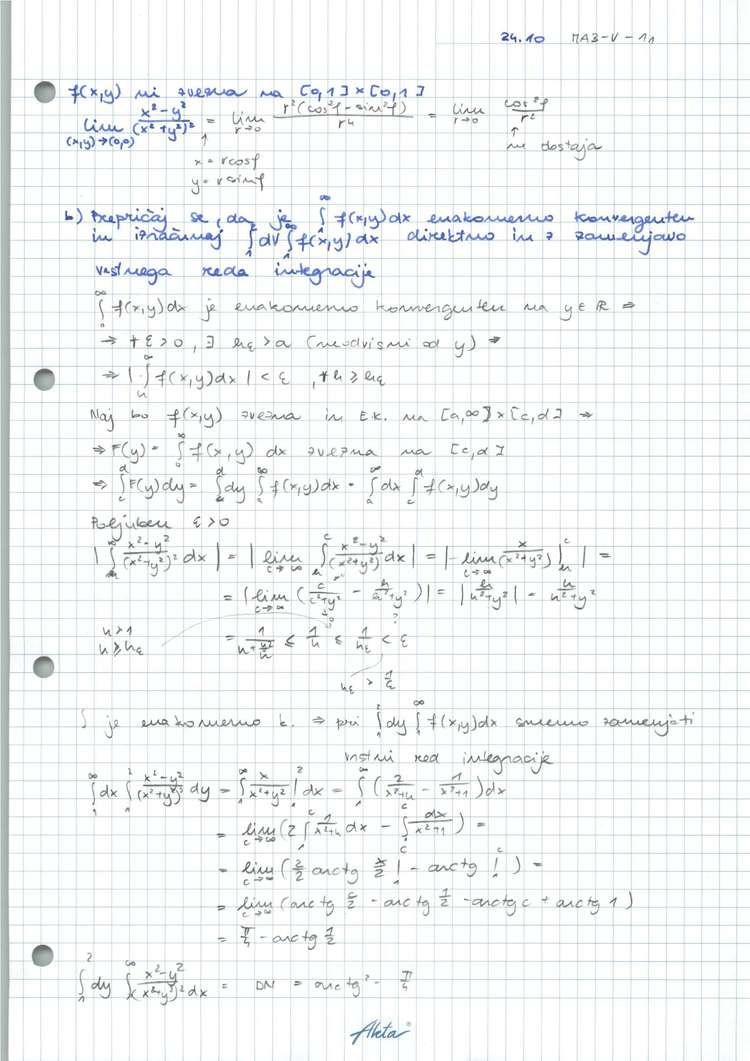 24.10 MA3-V-11
f(x,y) ni zvezna na [0,1]×[0,1]
lim (x,y)→(0,0) (x²-y²)/(x²+y²)² = lim r→0 r²(cos²φ-sin²φ)/r⁴ = lim r→0 cos2φ/r²
x = r cosφ
ne obstaja
y = r sinφ
b) Prepričaj se, da je ∫₁^∞ f(x,y)dx enakomerno konvergenten
in izračunaj ∫₁² dy ∫₁^∞ f(x,y)dx direktno in z zamenjavo
vrstnega reda integracije
∫ₐ^∞ f(x,y)dx je enakomerno konvergenten na y∈ℝ ⇒
⇒ ∀ε>0, ∃ h_ε>a (neodvisni od y) ⇒
⇒ |∫ₕ^∞ f(x,y)dx| < ε, ∀h≥h_ε
Naj bo f(x,y) zvezna in E.K. na [a,∞]×[c,d] ⇒
⇒ F(y) = ∫ₐ^∞ f(x,y) dx zvezna na [c,d]
⇒ ∫_c^d F(y)dy = ∫_c^d dy ∫ₐ^∞ f(x,y)dx = ∫ₐ^∞ dx ∫_c^d f(x,y)dy
Poljuben ε>0
|∫ₕ^∞ (x²-y²)/(x²+y²)² dx| = |lim c→∞ ∫ₕ^c (x²-y²)/(x²+y²)² dx| = |-lim c→∞ x/(x²+y²) |ₕ^c| =
= |lim c→∞ (c/(c²+y²) - h/(h²+y²))| = |h/(h²+y²)| = h/(h²+y²)
h>1
h≥h_ε
= 1/(h+y²/h) ≤ 1/h ≤ 1/h_ε < ε
h_ε > 1/ε
∫ je enakomerno k. ⇒ pri ∫₁² dy ∫₁^∞ f(x,y)dx smemo zamenjati
vrstni red integracije
∫₁^∞ dx ∫₁² (x²-y²)/(x²+y²)² dy = ∫₁^∞ y/(x²+y²) |₁² dx = ∫₁^∞ (2/(x²+4) - 1/(x²+1))dx
= lim c→∞ (2∫₁^c 1/(x²+4) dx - ∫₁^c dx/(x²+1)) =
= lim c→∞ (2/2 arctg x/2 |₁^c - arctg |₁^c) =
= lim c→∞ (arctg c/2 - arctg 1/2 - arctg c + arctg 1)
= π/4 - arctg 1/2
∫₁² dy ∫₁^∞ (x²-y²)/(x²+y²)² dx = DN = arctg 2 - π/4
Akta